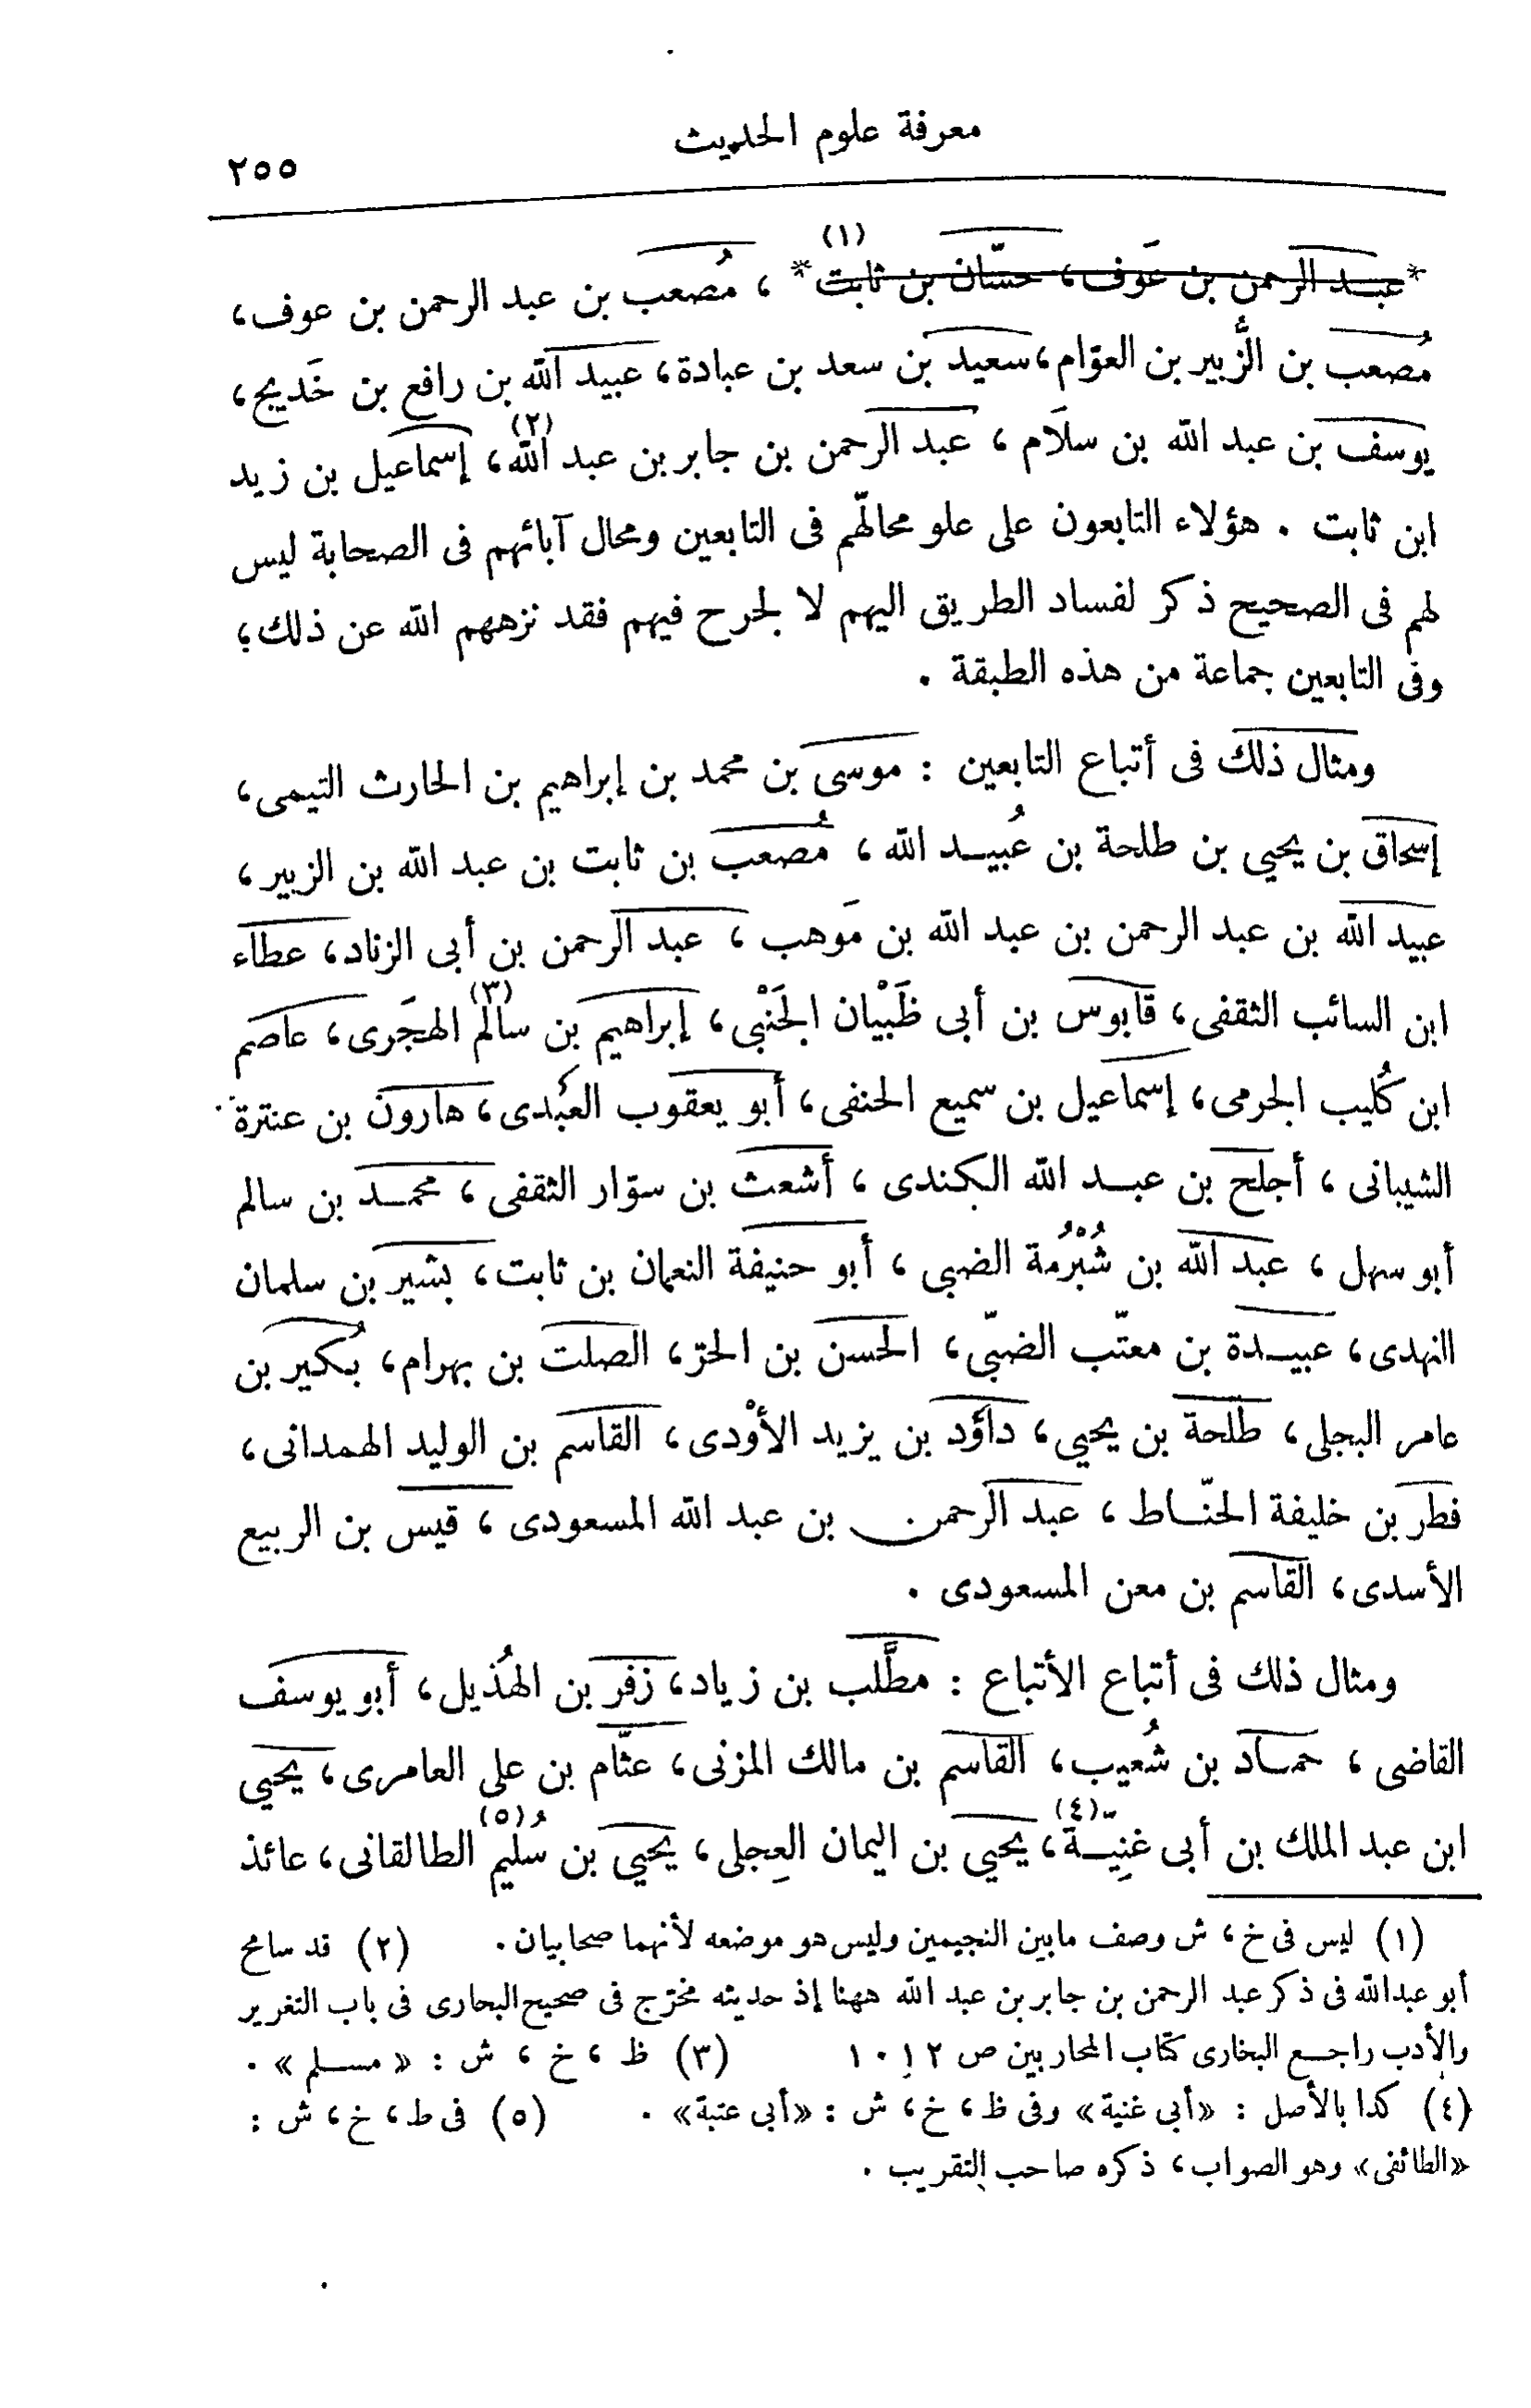 معرفة علوم الحديث
٢٥٥
*عبد الرحمن بن عَوف، حسّان بن ثابت(١)*، مُصعب بن عبد الرحمن بن عوف،
مُصعب بن الزُّبير بن العوّام، سعيد بن سعد بن عبادة، عبيد الله بن رافع بن خَديج،
يوسف بن عبد الله بن سلَام، عبد الرحمن بن جابر بن عبد الله(٢)، إسماعيل بن زيد
ابن ثابت. هؤلاء التابعون على علو محالّهم فى التابعين ومحال آبائهم فى الصحابة ليس
لهم فى الصحيح ذكر لفساد الطريق اليهم لا لجرح فيهم فقد نزههم الله عن ذلك؛
وفى التابعين جماعة من هذه الطبقة.
ومثال ذلك فى أتباع التابعين: موسى بن محمد بن إبراهيم بن الحارث التيمى،
إسحاق بن يحيى بن طلحة بن عُبيد الله، مُصعب بن ثابت بن عبد الله بن الزبير،
عبيد الله بن عبد الرحمن بن عبد الله بن مَوهب، عبد الرحمن بن أبى الزناد، عطاء
ابن السائب الثقفى، قابوس بن أبى ظَبْيان الجَنْبى، إبراهيم بن سالم(٣) الهجَرى، عاصم
ابن كُليب الجرمى، إسماعيل بن سميع الحنفى، أبو يعقوب العبَدى، هارون بن عنترة
الشيبانى، أجلح بن عبد الله الكندى، أشعث بن سوّار الثقفى، محمد بن سالم
أبو سهل، عبد الله بن شُبْرُمة الضبى، أبو حنيفة النعمان بن ثابت، بشير بن سلمان
النهدى، عبيدة بن معتّب الضبّى، الحسن بن الحرّ، الصلت بن بهرام، بُكير بن
عامر البجلى، طلحة بن يحيى، داؤد بن يزيد الأوْدى، القاسم بن الوليد الهمدانى،
فطر بن خليفة الحنّاط، عبد الرحمن بن عبد الله المسعودى، قيس بن الربيع
الأسدى، القاسم بن معن المسعودى.
ومثال ذلك فى أتباع الأتباع: مطَّلب بن زياد، زفر بن الهُذيل، أبو يوسف
القاضى، حماد بن شُعيب، القاسم بن مالك المزنى، عثّام بن على العامرى، يحيى
ابن عبد الملك بن أبى غنِيّة(٤)، يحيى بن اليمان العِجلى، يحيى بن سُليم(٥) الطالقانى، عائذ
(١) ليس فى خ، ش وصف مابين النجيمين وليس هو موضعه لأنهما صحابيان. (٢) قد سامح
أبو عبدالله فى ذكر عبد الرحمن بن جابر بن عبد الله ههنا إذ حديثه مخرّج فى صحيح البخارى فى باب التغرير
والأدب راجع البخارى كتاب المحاربين ص ١٠١٢ (٣) ظ، خ، ش: «مسلم».
(٤) كذا بالأصل: «أبى غنية» وفى ظ، خ، ش: «أبى عتبة». (٥) فى ط، خ، ش:
«الطائفى» وهو الصواب، ذكره صاحب التقريب.